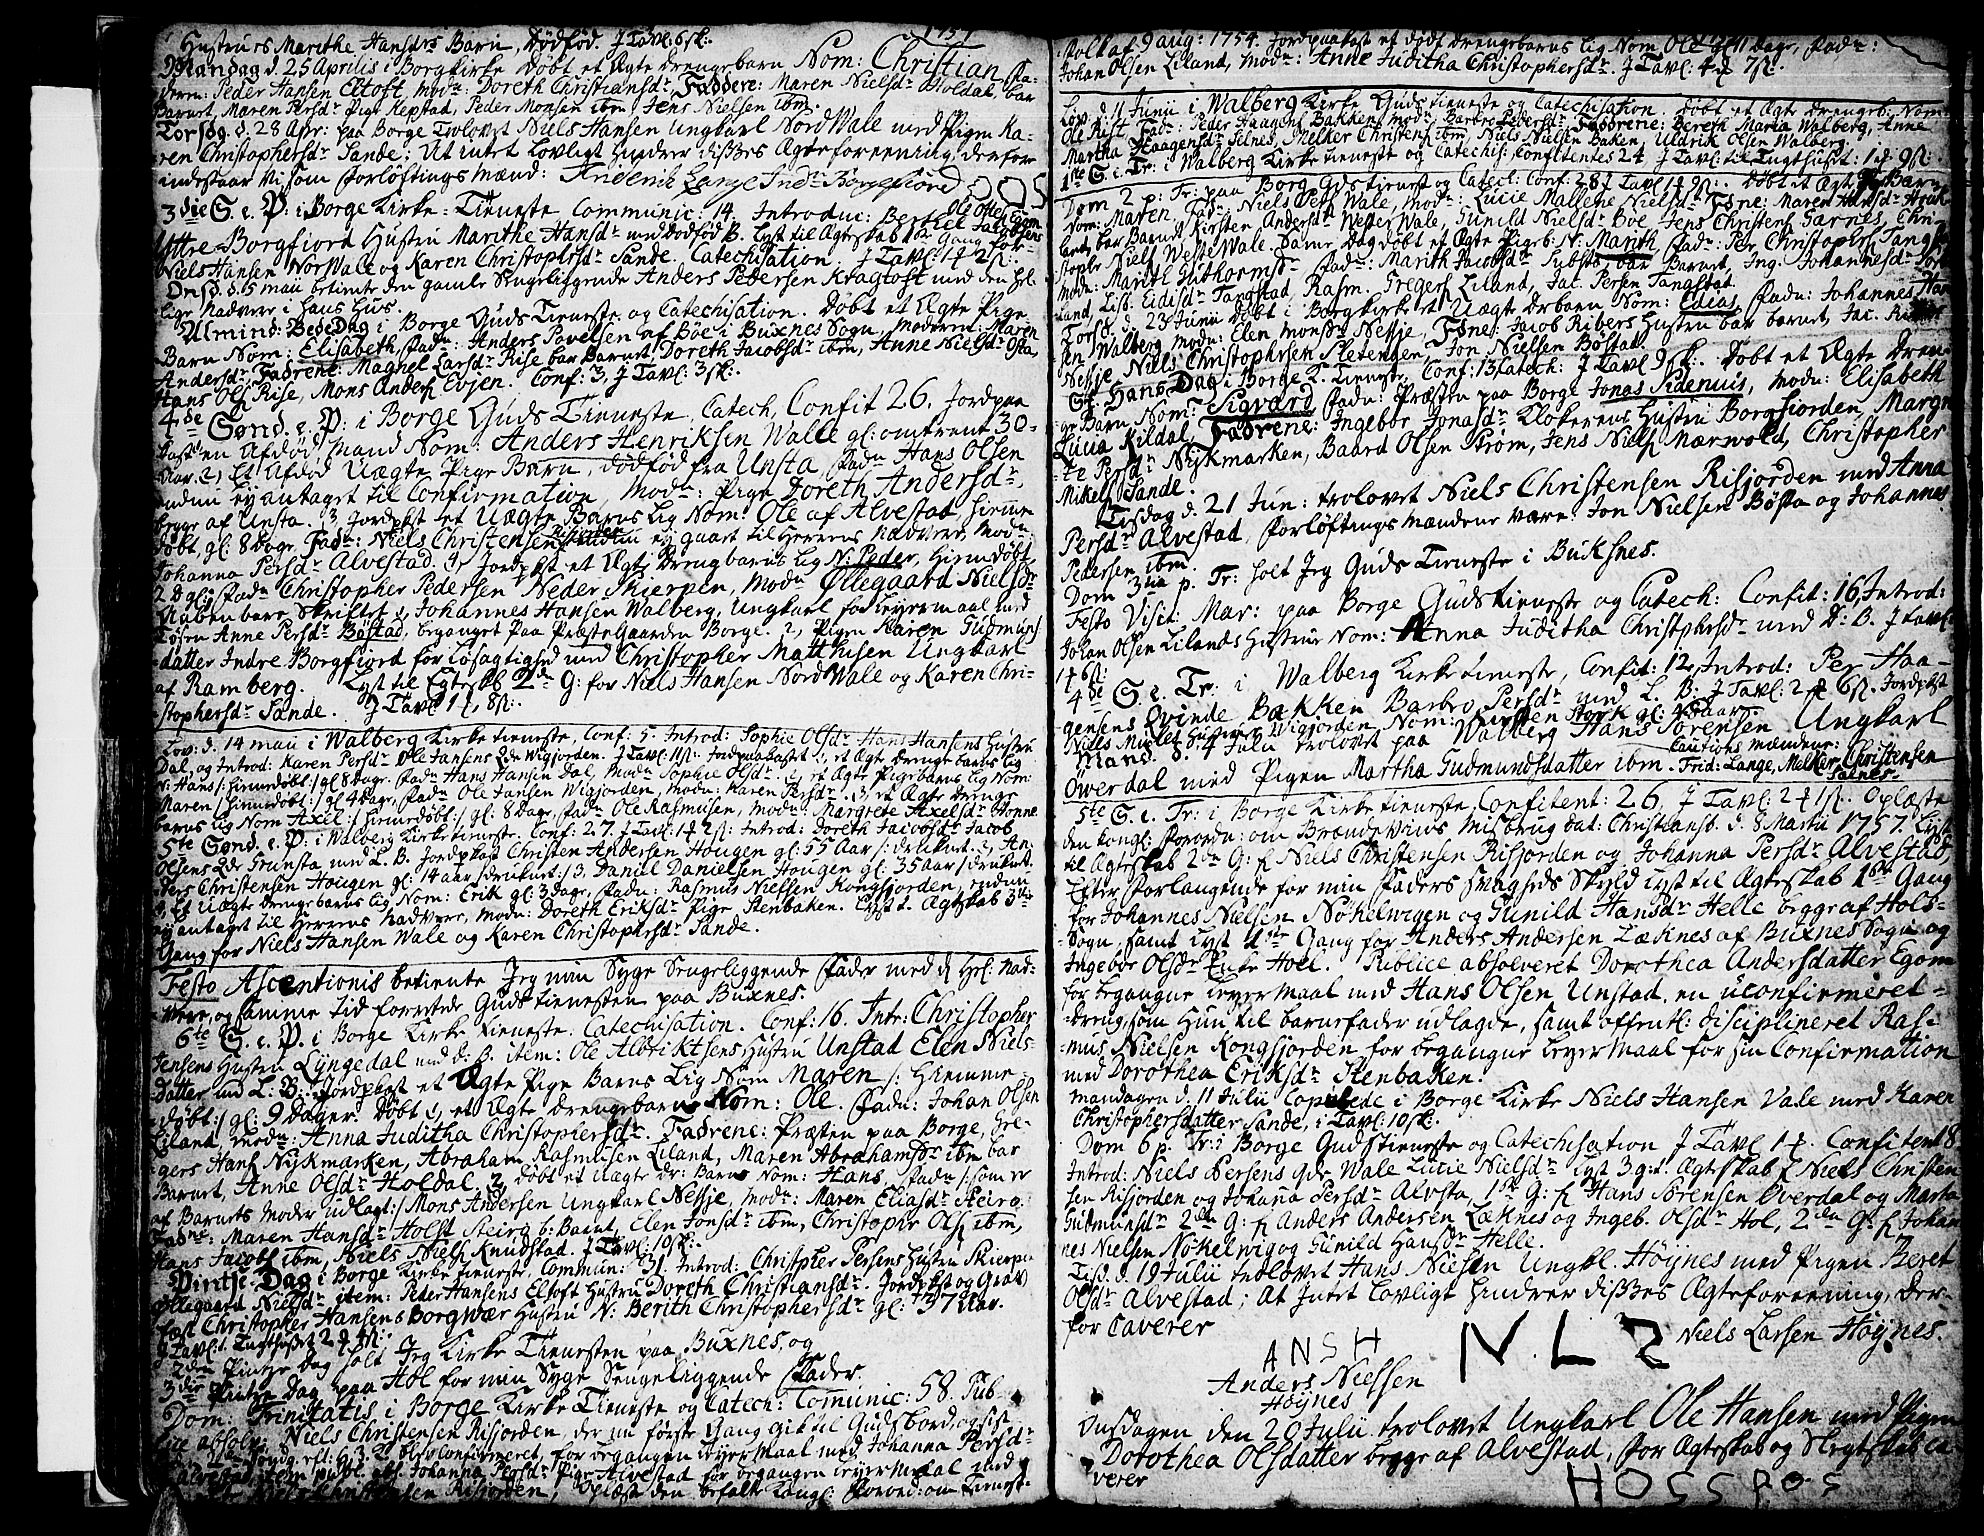 1757
Hustrues Marithe Hansdr Barn, Dødfød. J Tavl: 6 sk:
Mandag d. 25 Aprilis i Borgkirke Døbt et Ægte drengebarn Nom: Christian Fa-
deren: Peder Hansen Eltoft, modr: Doreth Christiansdr Faddere: Maren Nielsdr Holdal bar
Barnet, Maren Persdr Pige Kepstad, Peder Monsen ibm Jens Nielsen ibm.
Torsdg. d. 28 Apr: paa Borge Trolovet Niels Hansen Ungkarl NordWale med Pigen Ka-
ren Christophersdr Sande; At intet Lovligt hindrer dißes Ægteforeening, derfore
indestaar Vi som Forløftings Mænd:
3die S. e. P: i Borge Kirke-Tieneste, Communic: 14. Introduc: Bertel Jacobsens
Yttre-Borgfiord Hustru Marithe Hansdr med dødfød B. Lyst til Ægteskab 1ste Gang for
Niels Hansen NorWale og Karen Christophersdr Sande. Catechisation. J Tavl: 1 # 2 sk:
Onsd. d. 5 maii betiente den gamle Sengeliggende Anders Pedersen Kragtoft med den Hel-
lige Nadvere i hans Huus.
Almind: BedeDag i Borge Guds Tieneste og Catechisation. Døbt et Ægte Pige
Barn Nom: Elisabeth, Fadr: Anders Povelsen af Bøe i Buxnes Sogn, Moderen: Maren
Andersdr Fadrene: Magnel Larsdr Rise bar Barnet, Doreth Jacobsdr ibm, Anne Nielsdr
Hans Ols. Rise, Mons Anders. Evjen. Conf: 3, J Tavl: 3 sk:
4de Sønd. e. P: i Borge Guds Tieneste, Catech, Confit 26. Jordpaa
kast en Afdød Mand Nom: Anders Henriksen Walle gl: omtrent 30-
Aar. 2, Et Afdød Uægte Pige Barn, dødfød fra Unsta, Fadr Hans Olsen
endnu ey antaget til Confirmation, Modr: Pige Doreth Andersdr,
begge af Unsta. 3, Jordpkst et Uægte Barns Lig Nom: Ole af Alvestad, hiemme
døbt, gl: 8 dage, Fadr: Niels Christensen Risjorden ey gaaet til Herrens Nadvere, Modr:
Johanna Persdr Alvestad. 4, Jordpkst et Ægte Drengebarns Lig N: Peder, Hiemdøbt
28 gl: Fadr Christopher Pedersen Neder Skierpen, Modr Øllegaard Nielsdr
Aabenbare Skriftet 1, Johannes Hansen Walberg, Ungkarl for Leyermaal med
Tøsen Anne Persdr Bøstad, begangen Paa PræsteGaarden Borge. 2, Pigen Karen Gudmuns
datter Indre Borgfiord for Løsagtighed med Christopher Matthisen Ungkarl
af Ramberg. Lyst til Egteskb 2de G: for Niels Hansen NordWale og Karen Chri-
stophersdr Sande. J Tavl 1 #, 8 sk:
Løv. d. 14 maii i Walberg Kirke tieneste, Conf: 5. Introd: Sophie Olsdr Hans Hansens Hustru
Dal, og Introd: Karen Persdr Ole Jansens Qde Wigjorden. J Tavl: 11 sk: Jordpaakastet 1, et Ægte drenge barns lig
N: Hans /: hiemdøbt :/ gl 8 dage. Fadr Hans Hansen Dal, Modr Sophie Olsdr. 2, et Ægte Pigebarns Lig Nom:
Maren /: hiemdøbt :/ gl 4 Dage, Fadr Ole Jansen Wigjorden, modr: Karen Persdr. 3, et Ægte drenge
barns Lig Nom Axel :/ hiemdøbt :/ gl: 8 dage, Fadr Ole Rasmusen, modr: Margrete Axelsdr Hønne
5te Sønd. e. P: i Walberg Kirke tieneste. Conf: 27. J Tavl: 1 # 2 sk: Introd: Doreth Jacobsdr Jacob
Olsens Qde Grunsta, med L. B. Jordpkast Christen Andersen Hougen gl: 55 Aar /: druknet. 2, An-
ders Christensen Hougen gl: 14 aar /: druknet :/ 3. Daniel Danielsen Hougen gl: 35 Aar /: druknet.
4, Et Uægte drengebarns lig Nom: Erik gl: 3 dage, Fadr: Rasmus Nielsen Kongsjorden, endnu
ey antaget til Herrens Nadvere, Modr: Doreth Eriksdr Pige Stenbaken. Lyst t. Ægtskab 3die
Gang for Niels Hansen Wale og Karen Christophersdr Sande.
Festo Ascentionis betiente Jeg min Syge Sengeliggende Fader med d Hel: Nad-
vere, og samme tid forrettede Guds tienesten paa Buxnes.
6te S. e. P. i Borge Kirke tieneste. Catechisation. Conf: 16. Intr: Christopher
Jensens Hustru Lyngedal med d. B. item: Ole Albriktsens Hustru Unstad Elen Niels-
Datter med L. B. Jordpkast et Ægte Pige Barns Lig Nom Maren /: Hiemme-
døbt :/ gl: 9 Dager. Døbt 1, et Ægte drengebarn Nom: Ole. Fadr: Johan Olsen
Liland, modr: Anna Juditha Christophersdr. Fadrene: Præsten paa Borge, Gre-
gers Hans. Nykmarken, Abraham Rasmusen Liland, Maren Abrahamsdr ibm bar
Barnet, Anne Olsdr Holdal. 2, Døbt et Uægte dr: Barn Nom: Hans, Fadr /: som er
af Barnets Moder udlagt :/ Mons Andersen Ungkarl Nesje, Modr: Maren Eliasdr Steiro.
Fadne: Maren Hansdr Holst Steiro b: Barnet, Elen Jonsdr ibm, Christopher Ols. ibm,
Hans Jacobs. ibm, Niels Niels. Knudstad. J Tavl: 10 sk:
Pintse-Dag i Borge Kirke tieneste. Commun: 31. Introd: Christpher Persens Hustru Skierpen
Øllegaard Nielsdr item: Peder Hansens Eltoft Hustru Doreth Christiansdr. Jordpkst og Grav
fæst Christopher Hansens Borgwær Hustru N: Berith Christophersdr gl: 37 Aar.
J Tavl. t. Tugthuset 2 # 4 sk:.
2den Pintse Dag holt Jeg Kirke Tienesten paa Buxnes, og
3die Pintse Dag paa Hol for min Syge Sengeliggende Fader.
Dom: Trinitatis i Borge Kirke Tieneste og Catech: Comunic: 58. Pub-
lice absolv: Niels Christensen Risjorden, der nu første Gang gik til Guds bord, og sist
for begangen Leyermaal med Johanna Persdr
Alvestad, item publ. abs. Johanna Persdr Pige Alvestad for begangen Leyermaal med
Niels Christensen Risjorden, Oplæst den befalte Kongl: Forord: om Tienest-
folk af 9 aug: 1754. Jordpaakast et døbt drengebarns lig Nom Ole gl 11 Dage, Fadr:
Johan Olsen Liland, Modr: Anne Juditha Christophersdr. J Tavl: 4 # 7 sk.
Løv. d. 11 Junii i Walberg Kirke Guds tieneste og Catechisation. Døbt et Ægte drengeb: Nom
Ole Rist, Fadr: Peder Haagens. Bakken, Modr: Barbro Pedersdr. Fadrene: Bereth Maria Walberg, Anne
Martha Haagensdr Selnes, Melker Christens. ibm, Niels Nielsen Baken, Uldrik Olsen Walberg.
1ste S. e. Tr: i Walberg Kirke tieneste og Catechis: Confitentes 24 J Tavl: til Tugthuset: 1 # 9 sk:
Dom 2 p. Tr: paa Borg Gdstieneste og Catecl: Conf: 28 J Tavl 1 # 9 sk. Døbt et Ægt. P. Barn
Nom: Maren, Fadr: Niels Pers. Wale, Modr: Lucie Mallene Nielsdr. Fsne: Maren Hansdr
bar Barnet Kirsten Andersdr Wester Wale, Gunild Nielsdr Boe, Jens Christens. Garnes, Chri-
stoph: Niels. Weste Wale. Samme Dag døbt et Ægte Pigeb: N: Marith, Fadr: Per Christophers. Tangstd
Modr: Marith Gutkormsdr. Fadr: Marith Jacobsdr Substs bar Barnet, Ing. Johannesdr
land, Lisb. Eidisdr Tangstad, Rasm. Gregers. Liland, Jac. Persen Tangstad.
Torsd. d. 23 Junii Døbt i Borgkirke et Uægte Drbarn Nom: Edias, Fadr: Johannes Han
sen Walberg modr: Elen monsdr Nesje, Fsne: Jacob Ribers Hustru bar barnet, Jac. Riber
Nesje, Niels Christophersen Sletengen, Jon Nielsen Bøstad.
St. Hans Dag i Borge K. Tieneste, Conf: 13, Catech: J Tavl 9 sk: Døbt et Ægte Dren-
ge Barn, Nom: Sigvard, Fadr: Præsten paa Borge Jonas Sidenuis, Modr: Elisabeth
Lucia Kildal, Fadrene: Ingebor Jonasdr Klokerens Hustru Borgfiorden, Margre
te Persdr Nykmarken, Baard Olsen Strøm, Jens Niels. Mærwold, Christopher
Mikels. Sande.
Tisdag d. 21 Jun: trolovet Niels Christensen Risjorden med Anna
Persdr Alvestad, Forløftings Mændene vare: Jon Nielsen Bøsta og Johannes
Pedersen ibm.
Dom 3tia p. Tr: holt Jeg Guds Tieneste i Buksnes.
Festo Visit: Mar: paa Borge Gudstieneste og Catech: Confit: 16, Introd:
Johan Olsen Lilands Hustrue Nom: Anna Juditha Christphersdr med D: B. J Tavl:
1 # 6 sk:
4de S. e. Tr: i Walberg Kirke tieneste, Confit: 12, Introd: Per Haa-
gensens Qvinde Bakken Barbro Persdr med L. B. J Tavl: 2 # 6 sk. Jordpkst
Niels Miclets Hustrue Wigjorden Nom: Kirsten Stork gl: 48 aar.
Mand. d. 4 Julii trolovet paa Walberg Hans Sørensen Ungkarl
Øwerdal med Pigen Martha Gudmundsdatter ibm. Cautions Mændene: Frid: Lange, Melker Christensen
Salnes.
5te S. e. Tr: i Borge Kirke tieneste, Confitent: 26, J Tavl: 2 # 1 sk. Oplæste
den Kongl: Forordn: om Brændeviins Misbrug dat: Christiansb. d. 8 Martii 1757. Lyst
til Ægteskab 2den G: f. Niels Christensen Risjorden og Johanna Persdr Alvestad,
Efter Forlangende for min Faders Svagheds Skyld Lyst til Ægteskab 1ste Gang
for Johannes Nielsen Nøkelwigen og Gunild Hansdr Helle begge af Hols-
Sogn, samt Lyst 1ste Gang for Anders Andersen Læknes af Buxnes Sogn og
Ingebor Olsdr Enke Hoel. Publice absolveret Dorothea Andersdatter Egom
for begangne Leyermaal med Hans Olsen Unstad, en uconfirmeret-
dreng, som hun til barnefader udlagde, samt offentl: disciplineret Ras-
mus Nielsen Kongsjorden for begangne Leyermaal for sin Confirmation
med Dorothea Eriksdr Stenbaken.
mandagen d. 11 Julii Copulede i Borge Kirke Niels Hansen Vale med Karen
Christophersdatter Sande, i Tavl: 10 sk:
Dom 6 p. Tr: i Borge Gudstieneste og Catechisation J Tavl 1 #. Confitent 8
Introd: Niels Persens Qde Wale Lucie Nielsdr Lyst 3 g. t. Ægteskab f. Niels Christen
sen Risjorden og Johana Persdr Alvsta, 1ste G: f. Hans Sørensen Øverdal og Marta
Gudmunsdr 2den G: f. Anders Andersen Læknes og Ingeb. Olsdr Hol, 2den G: f. Johan
nes Nielsen Nøkelwig og Gunild Hansdr Helle.
Tisd. d. 19 Julii trolovet Hans Nielsen Ungkl. Høynes med Pigen Beret
Olsdr Alvestad; At Intet Lovligt hindrer dißes Ægteforeening, Der-
for Caverer
Niels Larsen Høynes.
N. L S
A N S H
Anders Nielsen
Høynes
Onsdagen den 20 Julii trolovet Ungkarl Ole Hansen med Pigen
Dorothea Olsdatter begge af Alvestad, for Ægteskab og Slegtskab ca-
verer
H O S S P O S